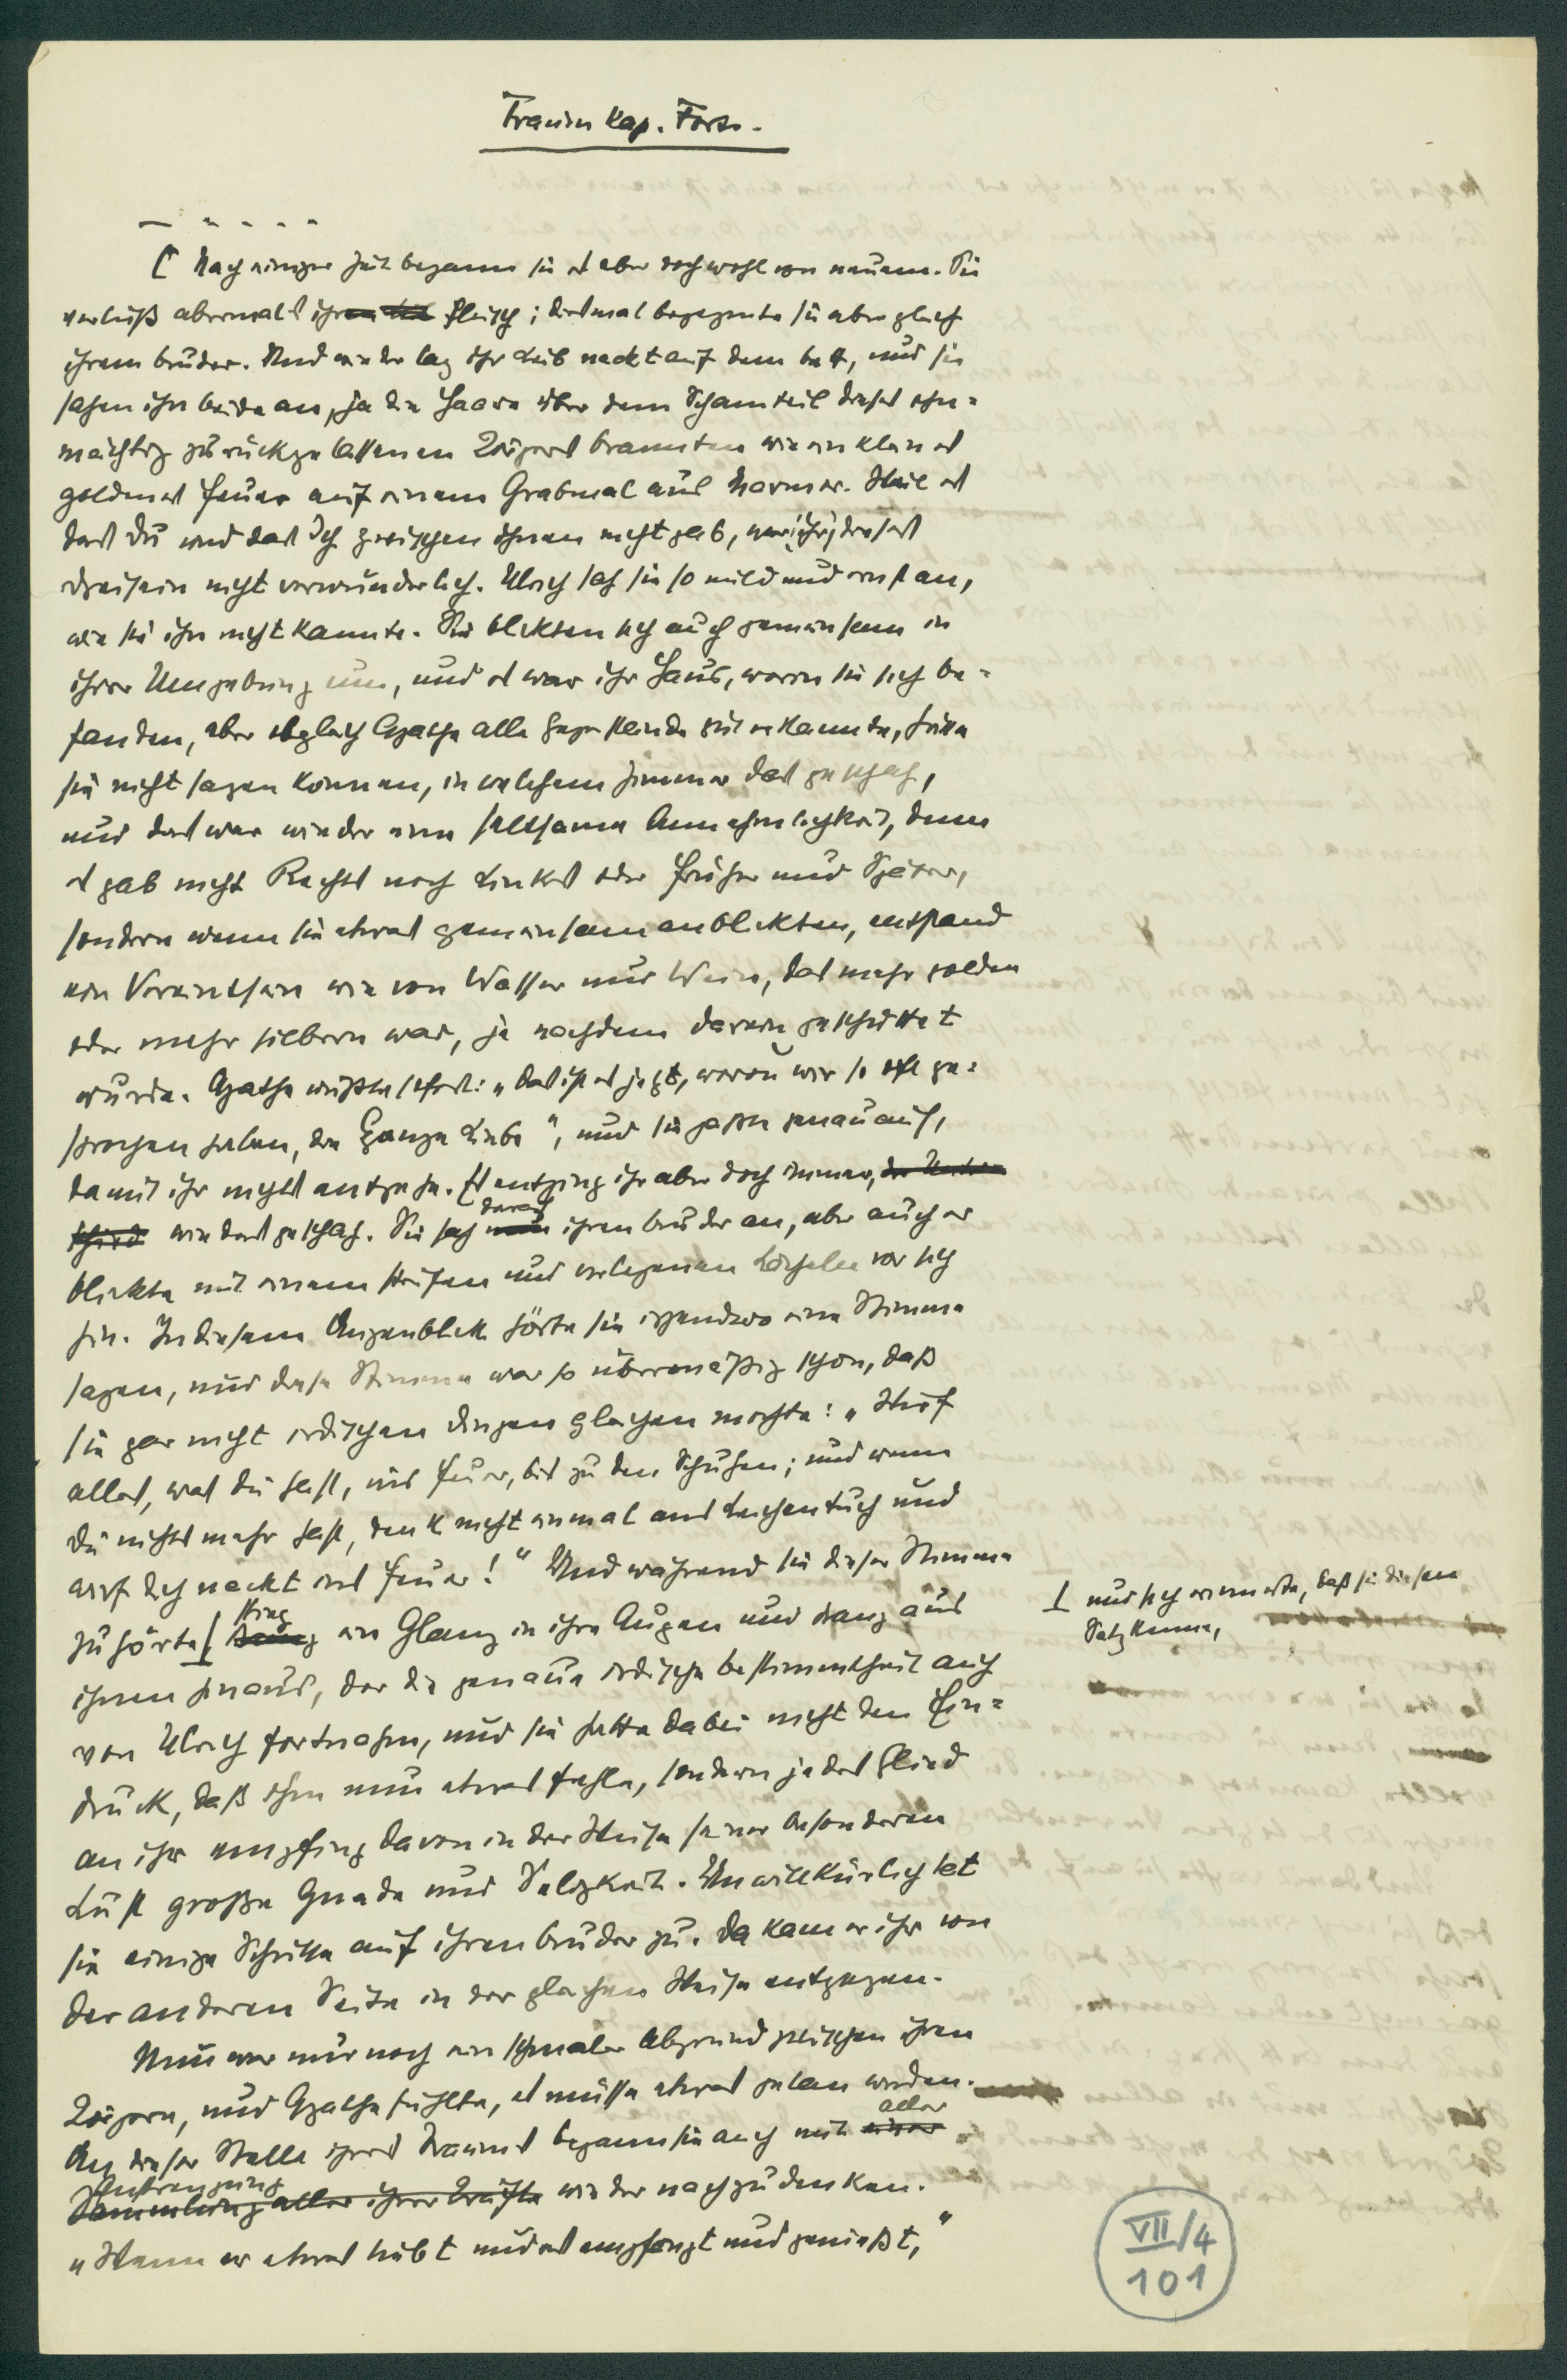 Traum Kap. Forts.
— - - - -
[ Nach einiger Zeit begann sie es aber doch wohl von neuem. Sie
verließ abermals ihren Fleisch; diesmal begegnete sie aber gleich
ihrem Bruder. Und wieder lag ihr Leib nackt auf dem Bett, und sie
sahen ihn beide an, ja die Haare über dem Schamteil dieses ohn-
mächtig zurückgelassenen Körpers brannten wie ein kleines
goldenes Feuer auf einem Grabmal aus Marmor. Weil es
das Du und das Ich zwischen ihnen nicht gab, war ihr dieses
Dreisein nicht verwunderlich. Ulrich sah sie so mild und ernst an,
wie sie ihn nicht kannte. Sie blickten sich auch gemeinsam in
ihrer Umgebung um, und es war ihr Haus, worin sie sich be-
fanden, aber obgleich Agathe alle Gegenstände gut erkannte, hätte
sie nicht sagen können, in welchem Zimmer das geschah,
und das war wieder eine seltsame Annehmlichkeit, denn
es gab nicht Rechts noch Links oder Früher und Später,
sondern wenn sie etwas gemeinsam anblickten, entstand
ein Vereintsein wie von Wasser und Wein, das mehr golden
oder mehr silbern war, je nachdem darein geschüttet
wurde. Agathe wußte sofort: „Das ist es jetzt, wovon wir so oft ge-
sprochen haben, die Ganze Liebe“, und sie paßte genau auf,
damit ihr nichts entgehe. Es entging ihr aber doch immer, der Unter-
schied wie das geschah. Sie sah darauf ihren Bruder an, aber auch er
blickte mit einem steifen und verlegenen Lächeln vor sich
hin. In diesem Augenblick hörte sie irgendwo eine Stimme
sagen, und diese Stimme war so übermäßig schön, daß
sie gar nicht irdischen Dingen gleichen mochte: „Wirf
alles, was du hast, ins Feuer, bis zu den Schuhen; und wenn
du nichts mehr hast, denk nicht einmal ans Leichentuch und
wirf dich nackt ins Feuer!“ Und während sie dieser Stimme
zuhörte ⊥ stieg ein Glanz in ihre Augen und drang aus
⊥ und sich erinnerte, daß sie diesen
Satz kenne,
ihnen hinaus, der die genaue irdische Bestimmtheit auch
von Ulrich fortnahm, und sie hatte dabei nicht den Ein-
druck, daß ihm nun etwas fehle, sondern jedes Glied
an ihr empfing davon in der Weise seiner besonderen
Lust große Gnade und Seligkeit. Unwillkürlich tat
sie einige Schritte auf ihren Bruder zu. Da kam er ihr von
der anderen Seite in der gleichen Weise entgegen.
Nun war nur noch ein schmaler Abgrund zwischen ihren
Körpern, und Agathe fühlte, es müsse etwas getan werden.
An dieser Stelle ihres Traums begann sie auch mit aller einer
Anstrengung Sammlung aller ihrer Kräfte wieder nachzudenken.
„Wenn er etwas liebt und es empfängt und genießt,“
VII/4
101